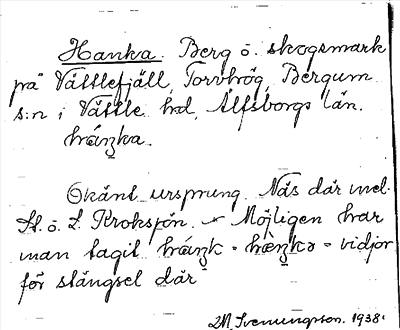 Hanka. Berg ö. skogsmark
på Vättlefjäll, Torvhög, Bergum
s:n i Vättle hd, Älfsborgs län.
Okänt ursprung. Näs där mel.
St. o. L. Kroksjön. Möjligen har
man tagit = vidjor
för stängsel där
M. Svenungson. 1938.